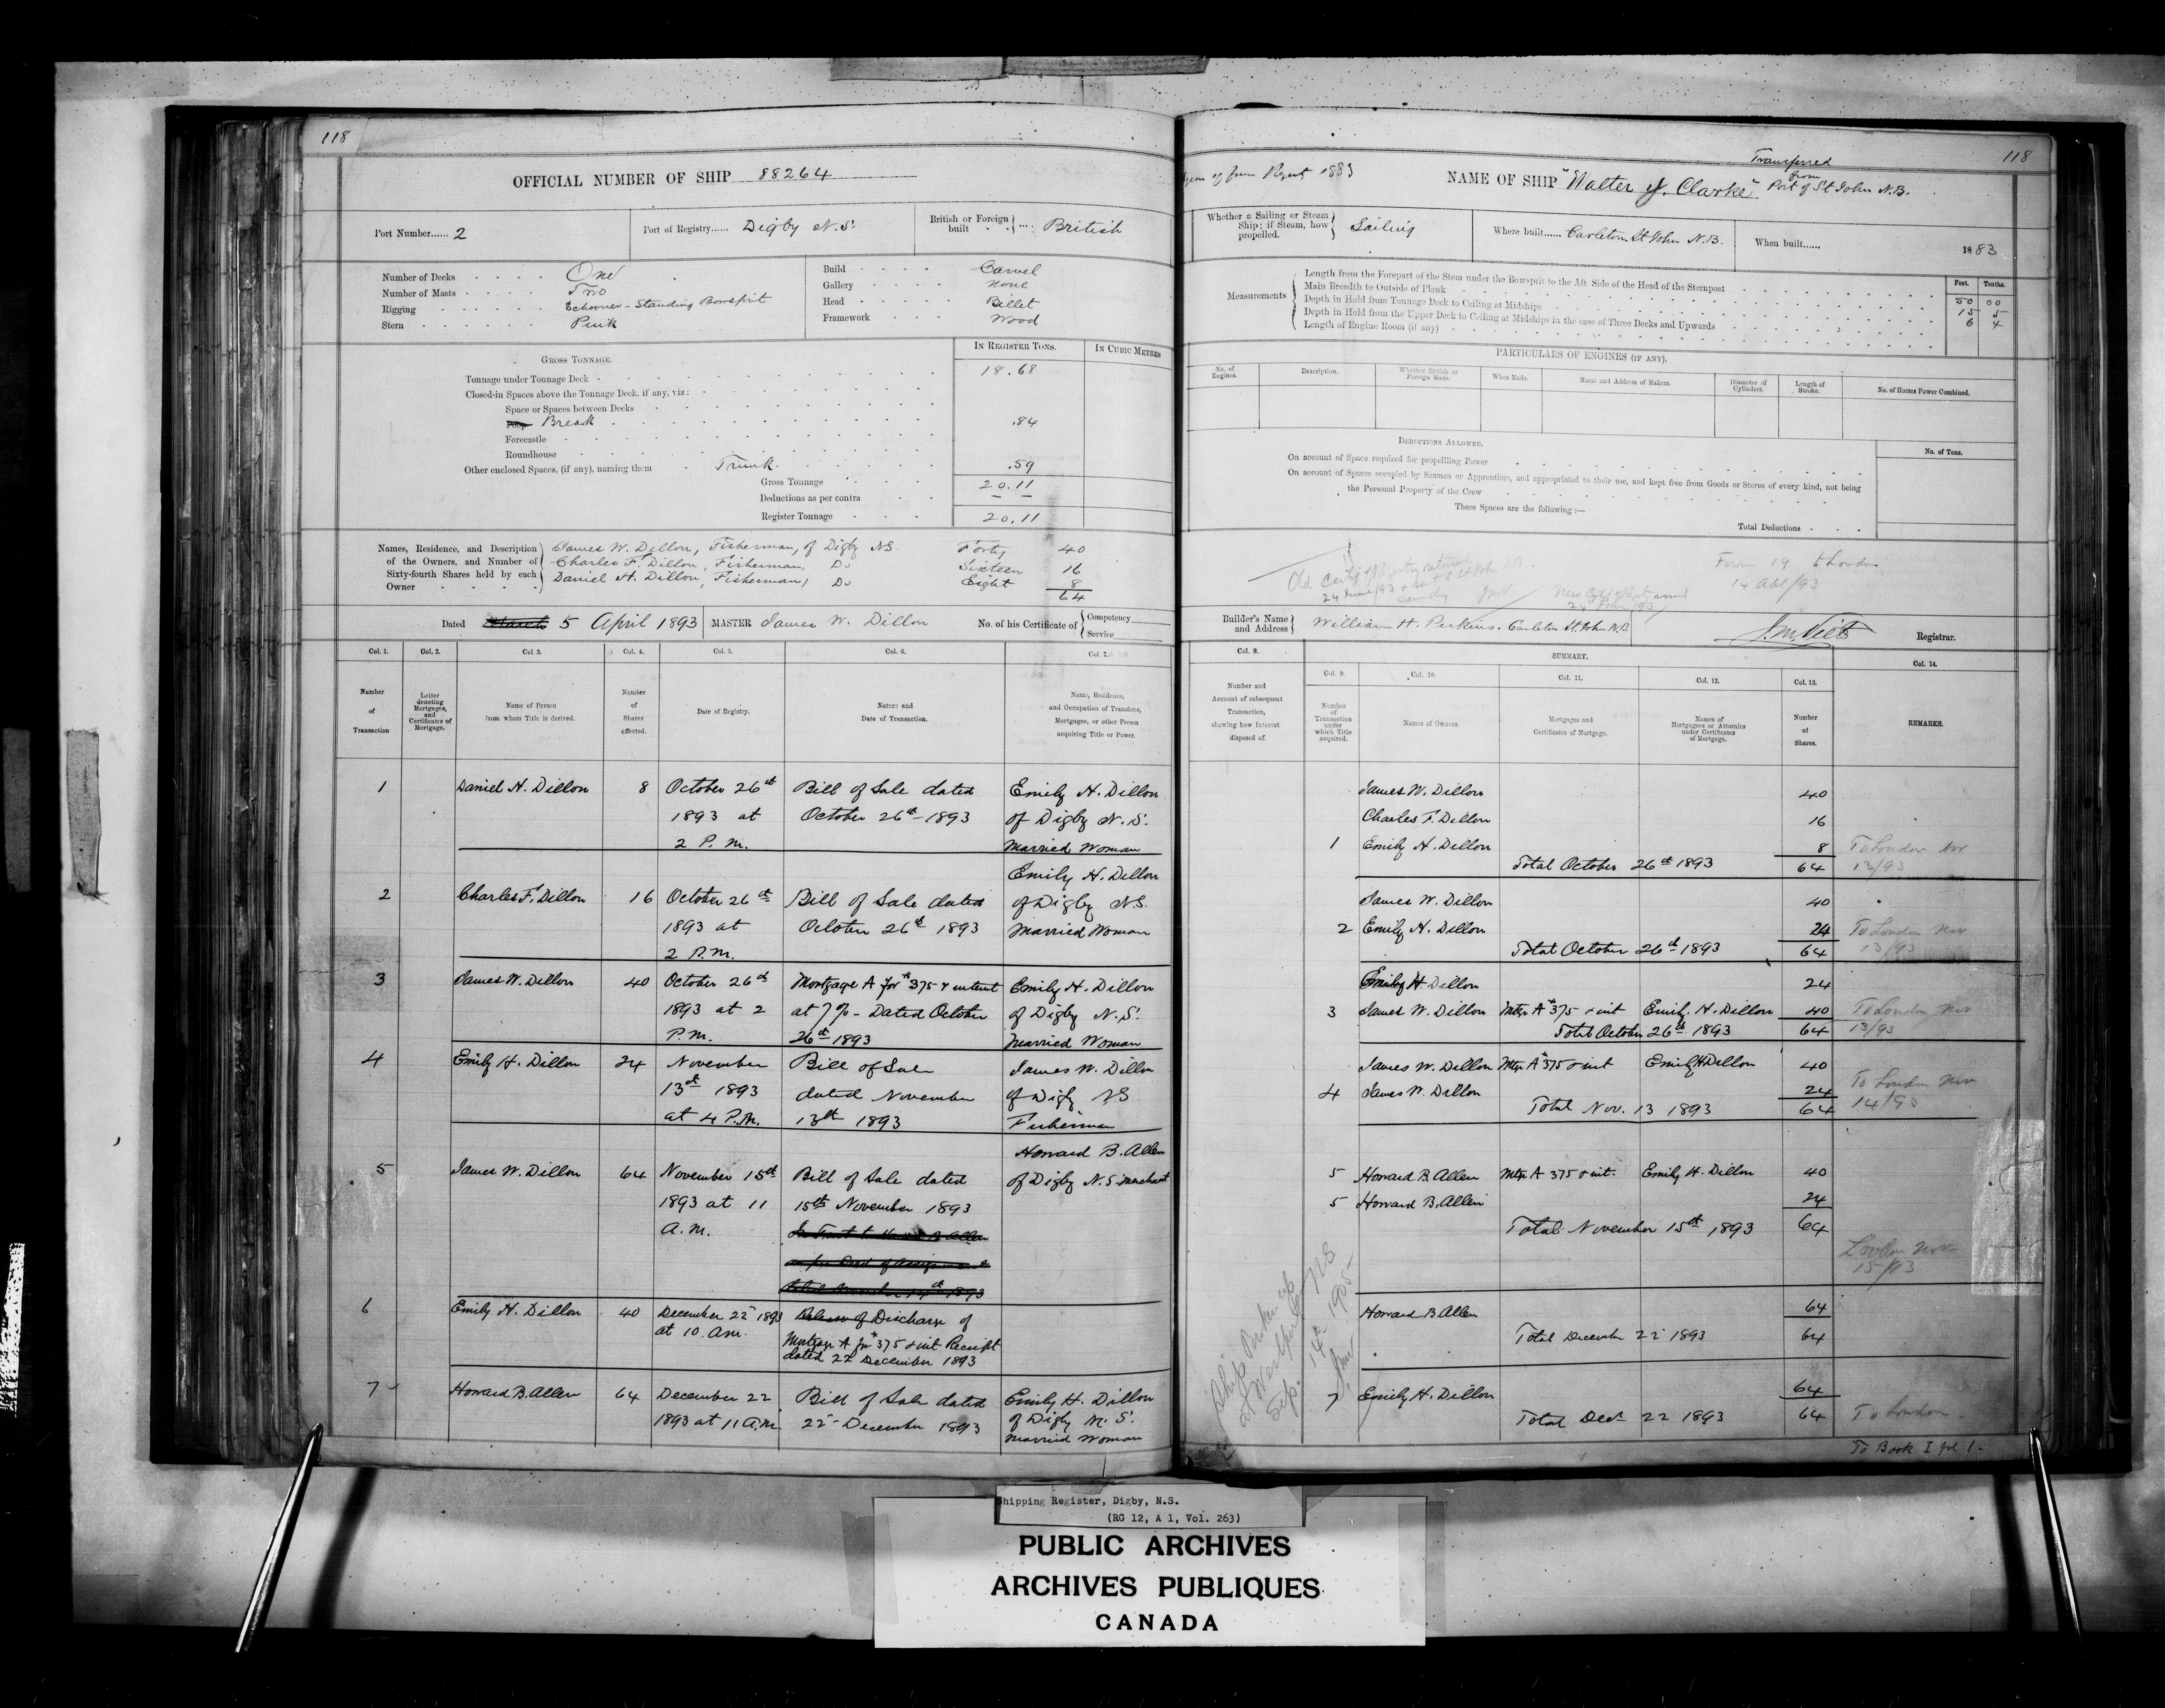 118
OFFICIAL NUMBER OF SHIP 88264
Port Number...... 2
Port of Registry...... Digby N.S.
British or Foreign built .... British
Number of Decks One
Number of Masts Two
Rigging Schooner - Standing Bowsprit
Stern Pink
Build Carvel
Gallery None
Head Billet
Framework Wood
GROSS TONNAGE.
IN REGISTER TONS.
IN CUBIC METRES
Tonnage under Tonnage Deck 18.68
Closed-in Spaces above the Tonnage Deck, if any, viz:
Space or Spaces between Decks
Poop Break .84
Forecastle
Roundhouse
Other enclosed Spaces, (if any), naming them Trunk .59
Gross Tonnage 20.11
Deductions as per contra — —
Register Tonnage 20.11
Names, Residence, and Description of the Owners, and Number of Sixty-fourth Shares held by each Owner
James W. Dillon, Fisherman, of Digby NS. Forty 40
Charles F. Dillon, Fisherman, Do Sixteen 16
Daniel H. Dillon, Fisherman, Do Eight 8
64
Dated March 5 April 1893
MASTER James W. Dillon
No. of his Certificate of Competency Service
Col. 1.
Col. 2.
Col. 3.
Col. 4.
Col. 5.
Col. 6.
Col. 7.
Number of Transaction
Letter denoting Mortgages, and Certificates of Mortgage.
Name of Person from whom Title is derived.
Number of Shares affected.
Date of Registry.
Nature and Date of Transaction.
Name, Residence, and Occupation of Transferee, Mortgagee, or other Person acquiring Title or Power.
1 Daniel H. Dillon 8 October 26th Bill of Sale dated Emily H. Dillon
1893 at October 26th 1893 of Digby N.S.
2 P.M. Married Woman
Emily H. Dillon
2 Charles F. Dillon 16 October 26th Bill of Sale dated of Digby NS.
1893 at October 26th 1893 Married Woman
2 P.M.
3 James W. Dillon 40 October 26th Mortgage A for $375 & interest Emily H. Dillon
1893 at 2 at 7% - Dated October of Digby N.S.
P.M. 26th 1893 Married Woman
4 Emily H. Dillon 24 November Bill of Sale James W. Dillon
13th 1893 dated November of Digby NS
at 4 P.M. 13th 1893 Fisherman
Howard B. Allen
5 James W. Dillon 64 November 15th Bill of Sale dated of Digby N.S. Merchant
1893 at 11 15th November 1893
A.M.
6 Emily H. Dillon 40 December 22 1893 Release of Discharge of
at 10. am. Mortgage A for $375 & int Receipt
dated 22 December 1893
7 Howard B. Allen 64 December 22 Bill of Sale dated Emily H. Dillon
1893 at 11 A.M. 22 December 1893 of Digby N.S.
Married Woman
118
Transferred from Port of St John N.B.
1883
NAME OF SHIP "Walter J. Clarke"
Whether a Sailing or Steam Ship; if Steam, how propelled. Sailing
Where built...... Carleton St John N.B.
When built...... 1883
Measurements
Feet. Tenths.
Length from the Forepart of the Stem under the Bowsprit to the Aft Side of the Head of the Sternpost 50 00
Main Breadth to Outside of Plank 15 5
Depth in Hold from Tonnage Deck to Ceiling at Midships 6 4
Depth in Hold from the Upper Deck to Ceiling at Midships in the case of Three Decks and Upwards
Length of Engine Room (if any)
PARTICULARS OF ENGINES (IF ANY).
No. of Engines.
Description.
Whether British or Foreign Made.
When Made.
Name and Address of Makers.
Diameter of Cylinders.
Length of Stroke.
No. of Horses Power Combined.
DEDUCTIONS ALLOWED.
No. of Tons.
On account of Space required for propelling Power
On account of Spaces occupied by Seamen or Apprentices, and appropriated to their use, and kept free from Goods or Stores of every kind, not being
the Personal Property of the Crew
These Spaces are the following :—
Total Deductions
Form 19 to London
Builder's Name and Address William H. Perkins. Carleton St. John N.B.
Registrar.
Col. 8.
SUMMARY.
Col. 9.
Col. 10.
Col. 11.
Col. 12.
Col. 13.
Col. 14.
Number and Account of subsequent Transaction, showing how Interest disposed of.
Number of Transaction under which Title acquired.
Names of Owners.
Mortgages and Certificates of Mortgage.
Names of Mortgagees or Attornies under Certificates of Mortgage.
Number of Shares.
REMARKS.
James W. Dillon 40
Charles F. Dillon 16
1 Emily H. Dillon 8 To London Nov
Total October 26th 1893 64 13/93
James W. Dillon 40
2 Emily H. Dillon 24 To London Nov
Total October 26th 1893 64 13/93
Emily H Dillon 24
3 James W. Dillon Mtge A $375 & int Emily H. Dillon 40 To London Nov
Total October 26th 1893 64 13/93
James W. Dillon Mtge A $375 & int Emily H Dillon 40
4 James W. Dillon 24 To London Nov
Total Nov. 13 1893 64 14/93
5 Howard B. Allen Mtge A 375 & int. Emily H. Dillon 40
5 Howard B. Allen 24
Total November 15th 1893 64
London Nov
15/93
Howard B Allen 64
Total December 22 1893 64
7 Emily H. Dillon 64
Total Dec 22 1893 64 To London
To Book I fol 1.
Ship Broken up
at Westport NS
Sep. 14th 1905
Shipping Register, Digby, N.S.
(RG 12, A 1, Vol. 263)
PUBLIC ARCHIVES
ARCHIVES PUBLIQUES
CANADA